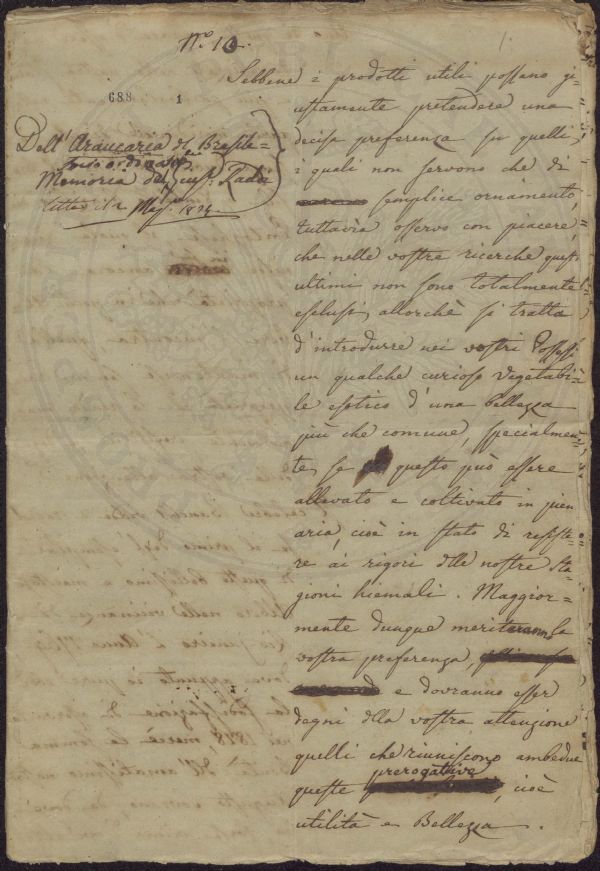 N.º 10.
1.
688 1
Dell'Araucaria del Brasile =
Memoria del Socio ordinario
Gius. Raddi
letta il
Sebbene i prodotti utili possano gi-
ustamente pretendere una
decisa preferenza su quelli
i quali non servono che di
semplice ornamento,
tuttavia osservo con piacere,
che nelle vostre ricerche questi
ultimi non sono totalmente
esclusi, allorchè si tratta
d'introdurre nei vostri Possessi
un qualche curioso vegetabi-
le esotico d'una bellezza
più che comune, specialmen-
te, se questo può essere
allevato e coltivato in pien
aria, cioè in stato di resiste-
re ai rigori dlle nostre sta-
gioni hiemali. Maggior-
mente dunque meriteranno la
vostra preferenza,
e dovranno esser
degni dlla vostra attenzione
quelli che riuniscono ambedue
queste prerogative, cioè
utilità e Bellezza.